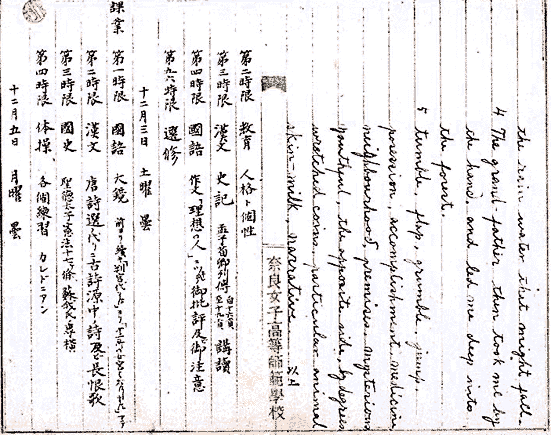 the rain water that might fall.
4 The grand father then took me by
the hand, and led me deep into
the forest.
5 tumble, flap, grumble, grasp,
possession, accomplishment, medicine
neighbourhood, premises, mysterious
youthful, the opposite side, by degrees
wretched, coins, particular, animal
skin-milk, narrative. 以上
奈良女子高等師範學校
第二時限 教育 人格ト個性
第三時限 漢文 史記 孟子荀卿列傳 講讀
第四時限 國語 作文「理想の人」
第五六時限 選修
十二月三日 土曜 曇
課業
第一時限 國語 大鏡
第二時限 漢文 唐詩選ノ代リニ古詩源中ノ詩及ビ長恨歌
第三時限 國史 聖徳太子憲法十七條 蘇我氏専横
第四時限 体操、各個練習 カレドニアン
十二月五日 月曜 曇